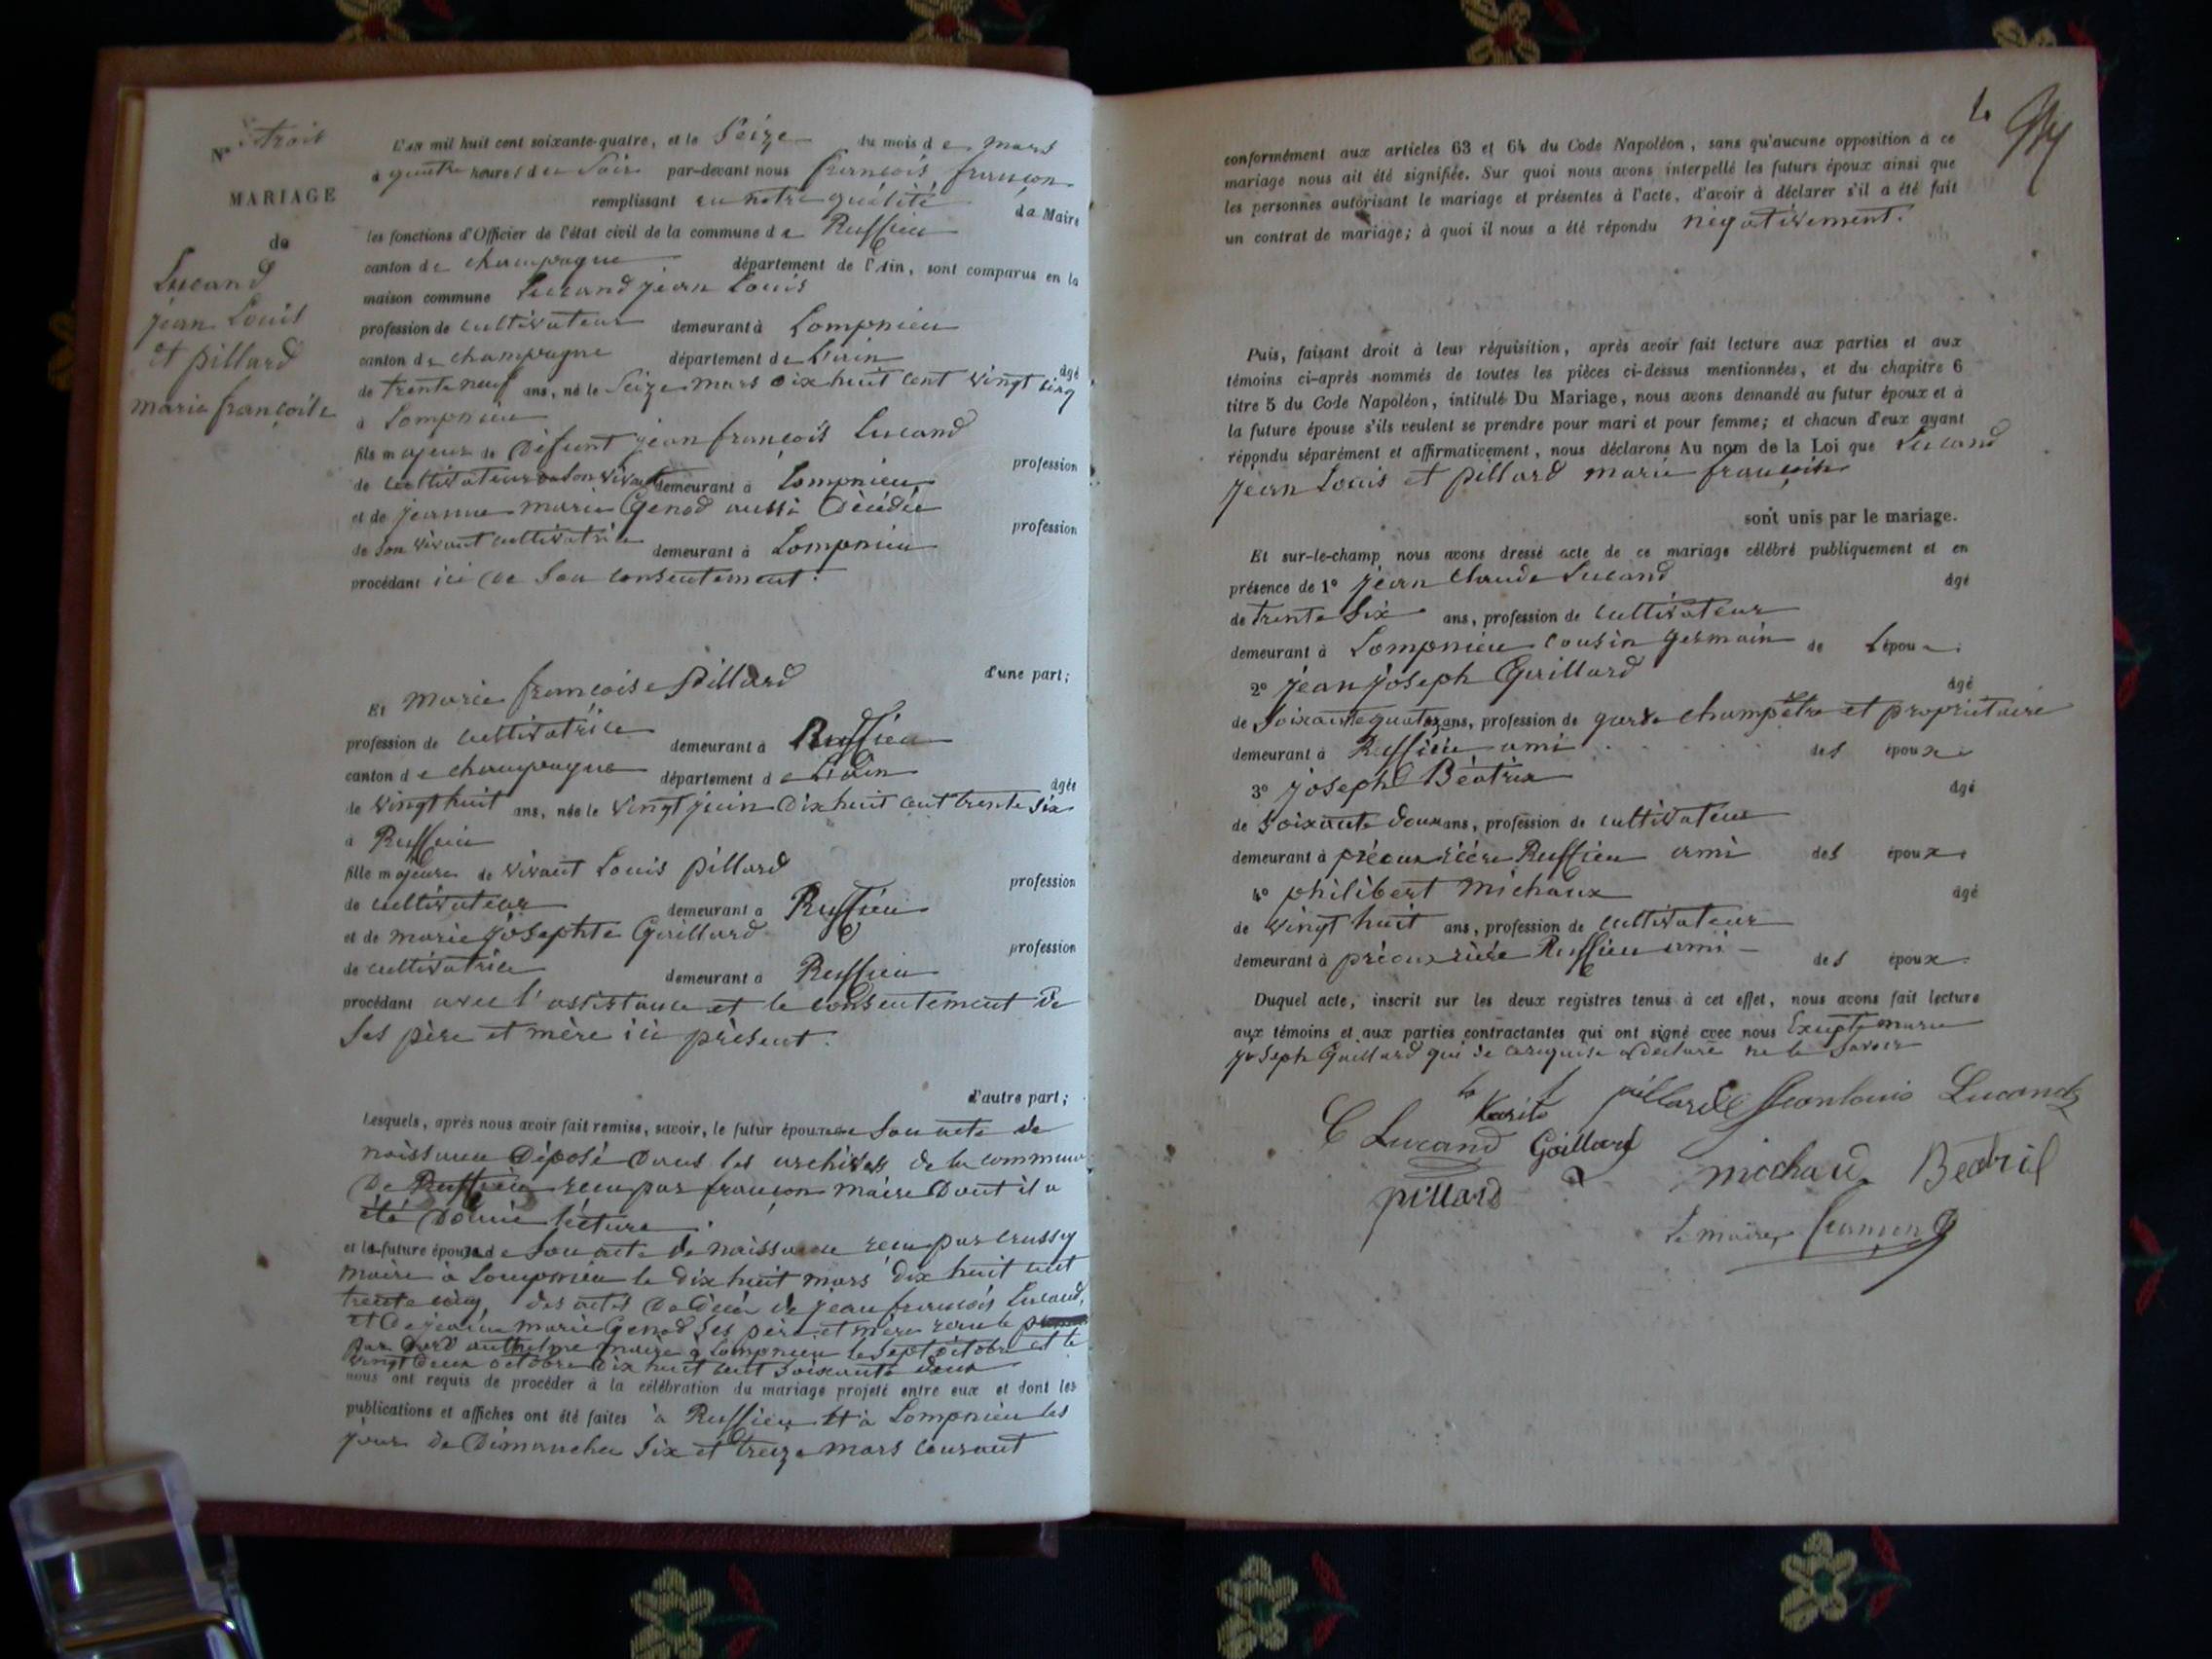 Nº trois
MARIAGE
de
Lucand
jean Louis
et pillard
marie françoise
L'an mil huit cent soixante-quatre, et le Seize du mois de mars
à quatre heures du Soir par-devant nous françois françon
remplissant en notre qualité de Maire
les fonctions d'Officier de l'état civil de la commune de Ruffieu
canton de champagne département de l'Ain, sont comparus en la
maison commune Lucand jean Louis
profession de cultivateur demeurant à Lompnieu
canton de champagne département de L'ain âgé
de trente neuf ans, né le Seize mars dix huit cent vingt cinq
à Lompnieu
fils majeur de Défunt jean françois Lucand profession
de cultivateur de son vivant demeurant à Lompnieu
et de jeanne marie Genod aussi Décédée profession
de son vivant cultivatrice demeurant à Lompnieu
procédant ici de Son consentement.
d'une part;
Et marie françoise Pillard
profession de cultivatrice demeurant à Ruffieu
canton de champagne département de L'ain âgée
de vingt huit ans, née le vingt juin Dix huit cent trente six
à Ruffieu
fille majeure de vivant Louis pillard profession
de cultivateur demeurant à Ruffieu
et de marie josephte Gaillard profession
de cultivatrice demeurant à Ruffieu
procédant avec l'assistance et le consentement de
Ses père et mère ici présent.
d'autre part;
Lesquels, après nous avoir fait remise, savoir, le futur époux de Son acte de
naissance Déposé Dans les archives de la commune
De Ruffieu recu par françon maire Dont il a
été Donné lecture.
et la future épouse de Son acte de naissance recu par
maire à Lompnieu le dix huit mars dix huit cent
trente cinq, des actes De Décès de jean françois Lucand,
et De jeanne marie Genod Ses père et mère recu le
par anthelme maire à Lompnieu le Sept octobre et le
vingt Deux octobre Dix huit cent Soixante Deux
nous ont requis de procéder à la célébration du mariage projeté entre eux et dont les
publications et affiches ont été faites à Ruffieu et à Lompnieu les
jour de Dimanche Six et treize mars courant
4
conformément aux articles 63 et 64 du Code Napoléon, sans qu'aucune opposition à ce
mariage nous ait été signifiée. Sur quoi nous avons interpellé les futurs époux ainsi que
les personnes autorisant le mariage et présentes à l'acte, d'avoir à déclarer s'il a été fait
un contrat de mariage; à quoi il nous a été répondu négativement.
Puis, faisant droit à leur réquisition, après avoir fait lecture aux parties et aux
témoins ci-après nommés de toutes les pièces ci-dessus mentionnées, et du chapitre 6
titre 5 du Code Napoléon, intitulé Du Mariage, nous avons demandé au futur époux et à
la future épouse s'ils veulent se prendre pour mari et pour femme; et chacun d'eux ayant
répondu séparément et affirmativement, nous déclarons Au nom de la Loi que Lucand
jean Louis et pillard marie françoise
sont unis par le mariage.
Et sur-le-champ nous avons dressé acte de ce mariage célébré publiquement et en
présence de 1º jean Claude Lucand âgé
de trente Six ans, profession de cultivateur
demeurant à Lompnieu cousin germain de L'époux
2º jean joseph Gaillard âgé
de Soixante quatorze ans, profession de garde champêtre et propriétaire
demeurant à Ruffieu ami des époux
3º joseph Béatrix âgé
de Soixante douze ans, profession de cultivateur
demeurant à Ruffieu ami des époux
4º philibert michaux âgé
de vingt huit ans, profession de cultivateur
demeurant à Ruffieu ami des époux
Duquel acte, inscrit sur les deux registres tenus à cet effet, nous avons fait lecture
aux témoins et aux parties contractantes qui ont signé avec nous Excepte marie
joseph Gaillard qui de ce requise a déclaré ne le Savoir
pillard Jeanlouis Lucand
C Lucand Gaillard
pillard michaud Beatrix
Le maire françon